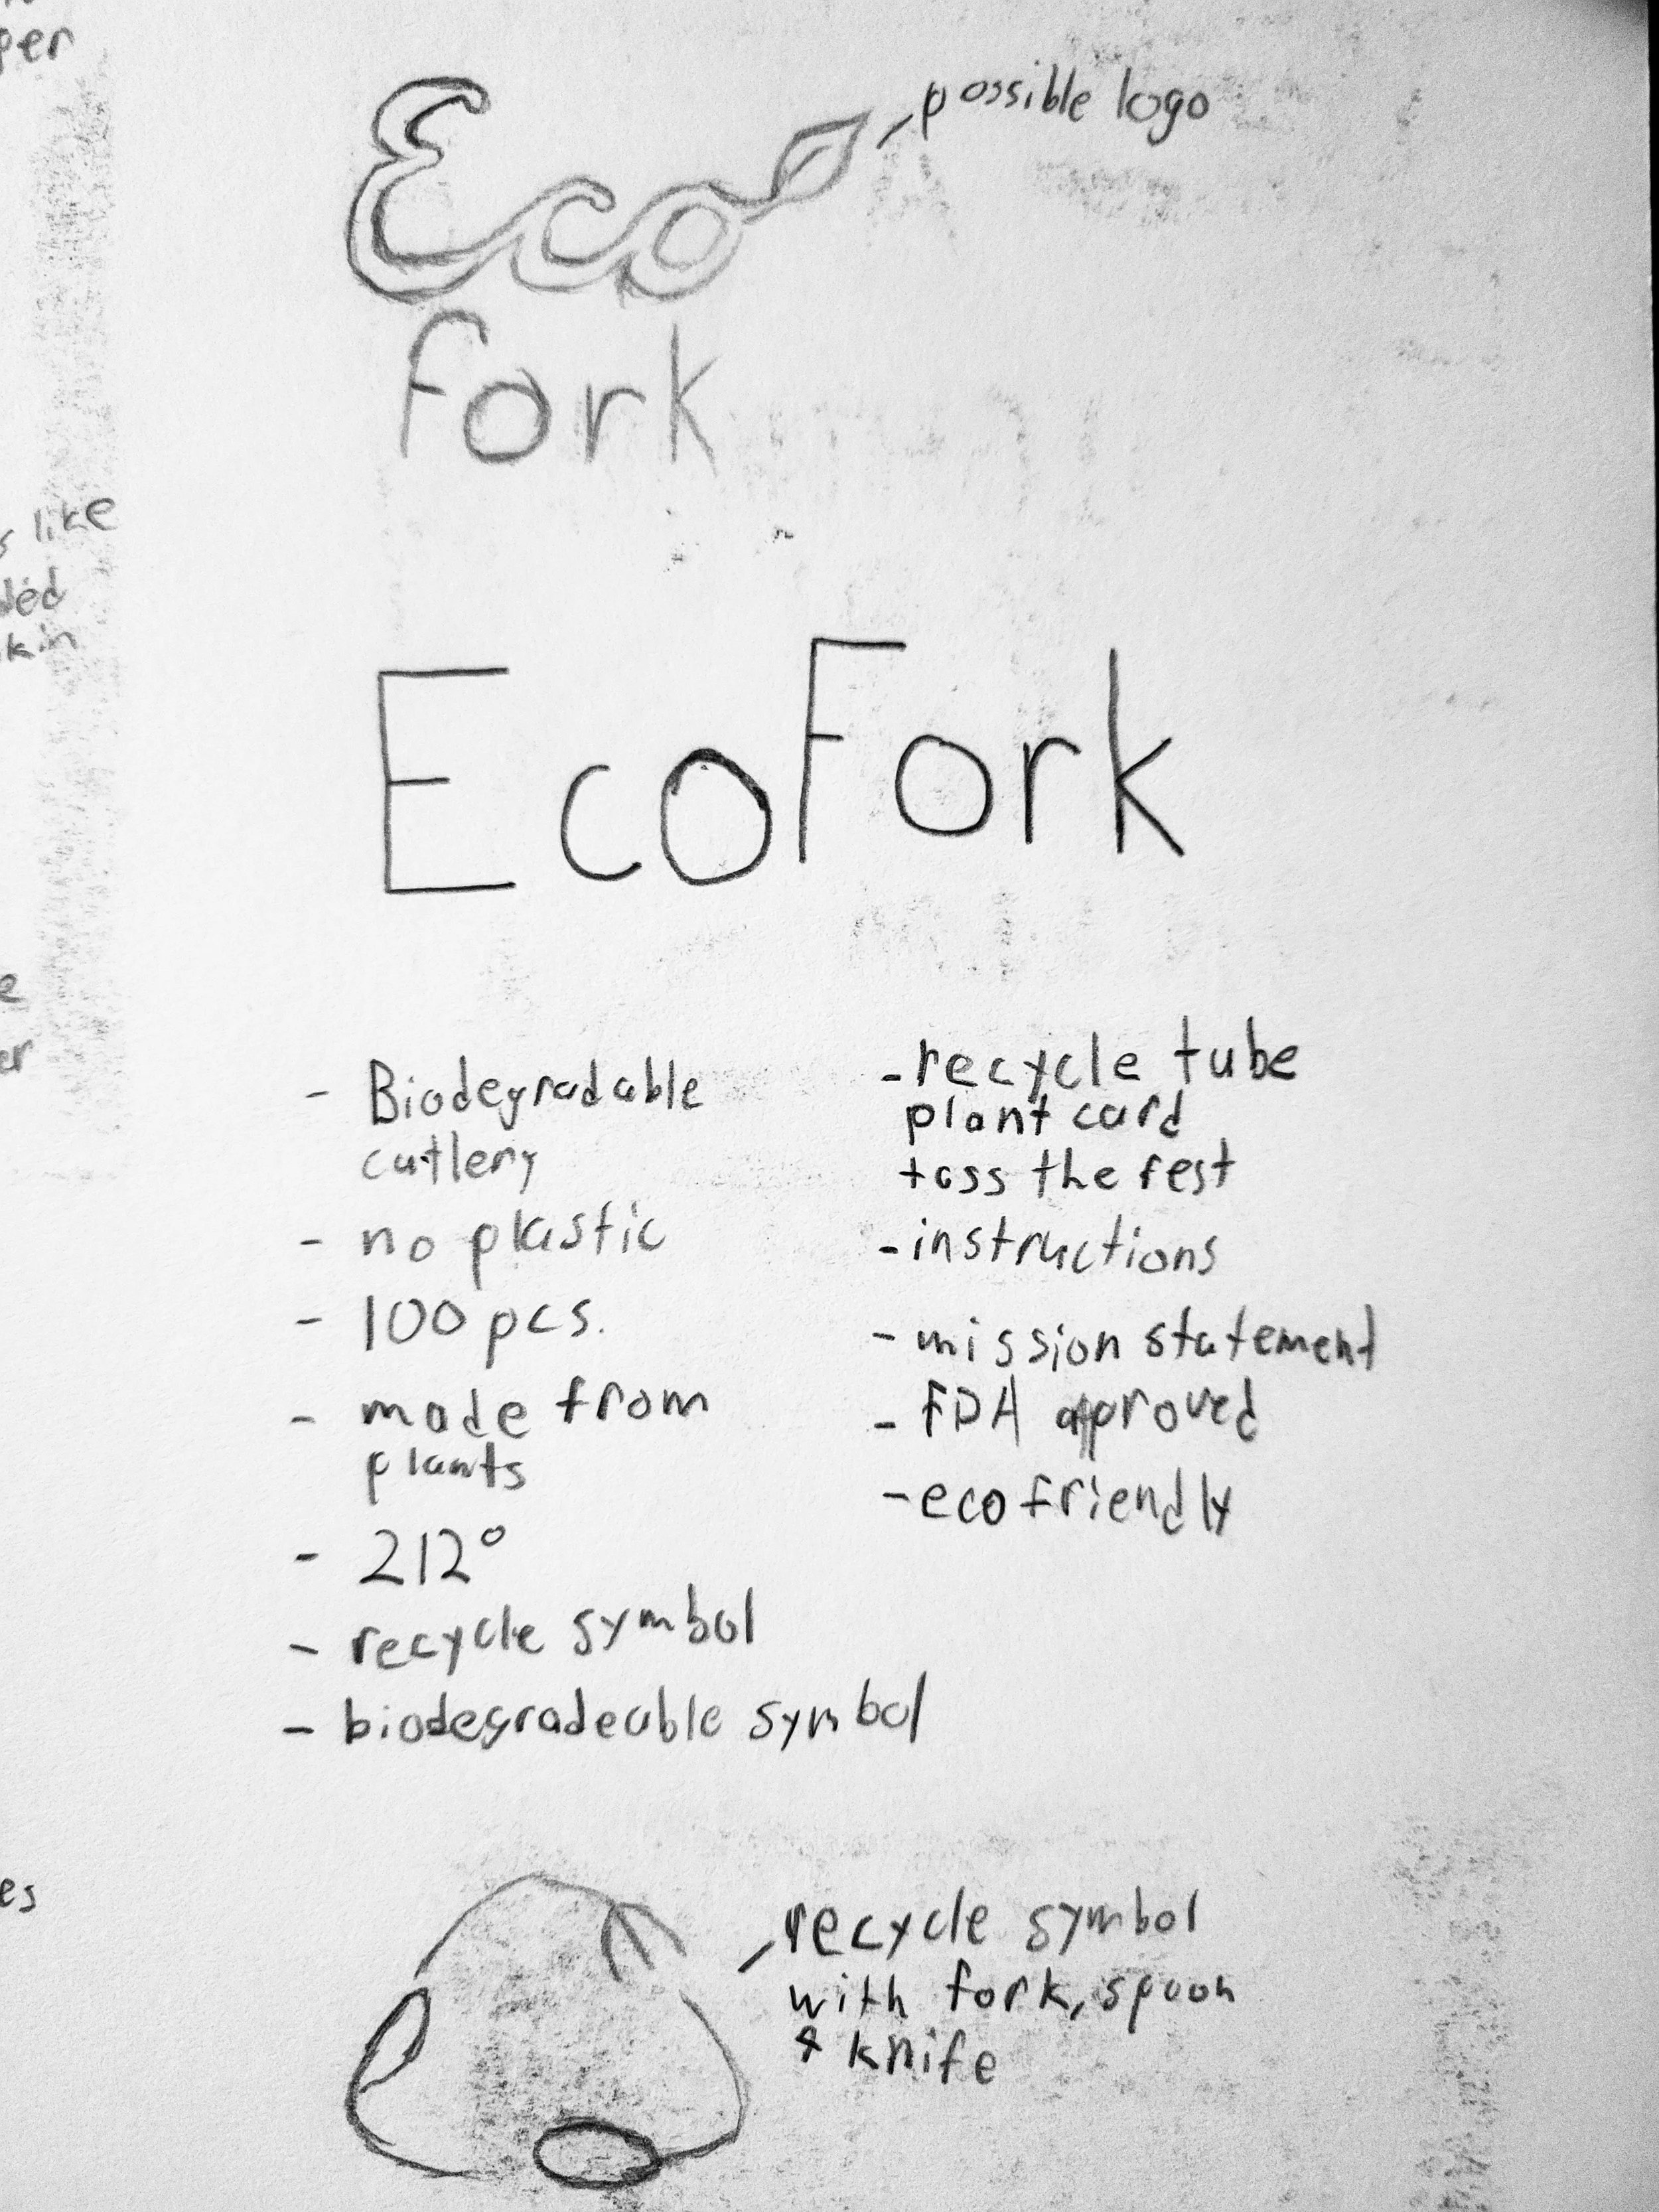 per
s like
kin
e
er
es
Eco
possible logo
fork
EcoFork
- Biodegradable
cutlery
- no plastic
- 100 pcs.
- made from
plants
- 212°
- recycle symbol
- biodegradeable symbol
- recycle tube
plant card
toss the rest
- instructions
- mission statement
- FDA approved
- eco friendly
recycle symbol
with fork, spoon
& knife